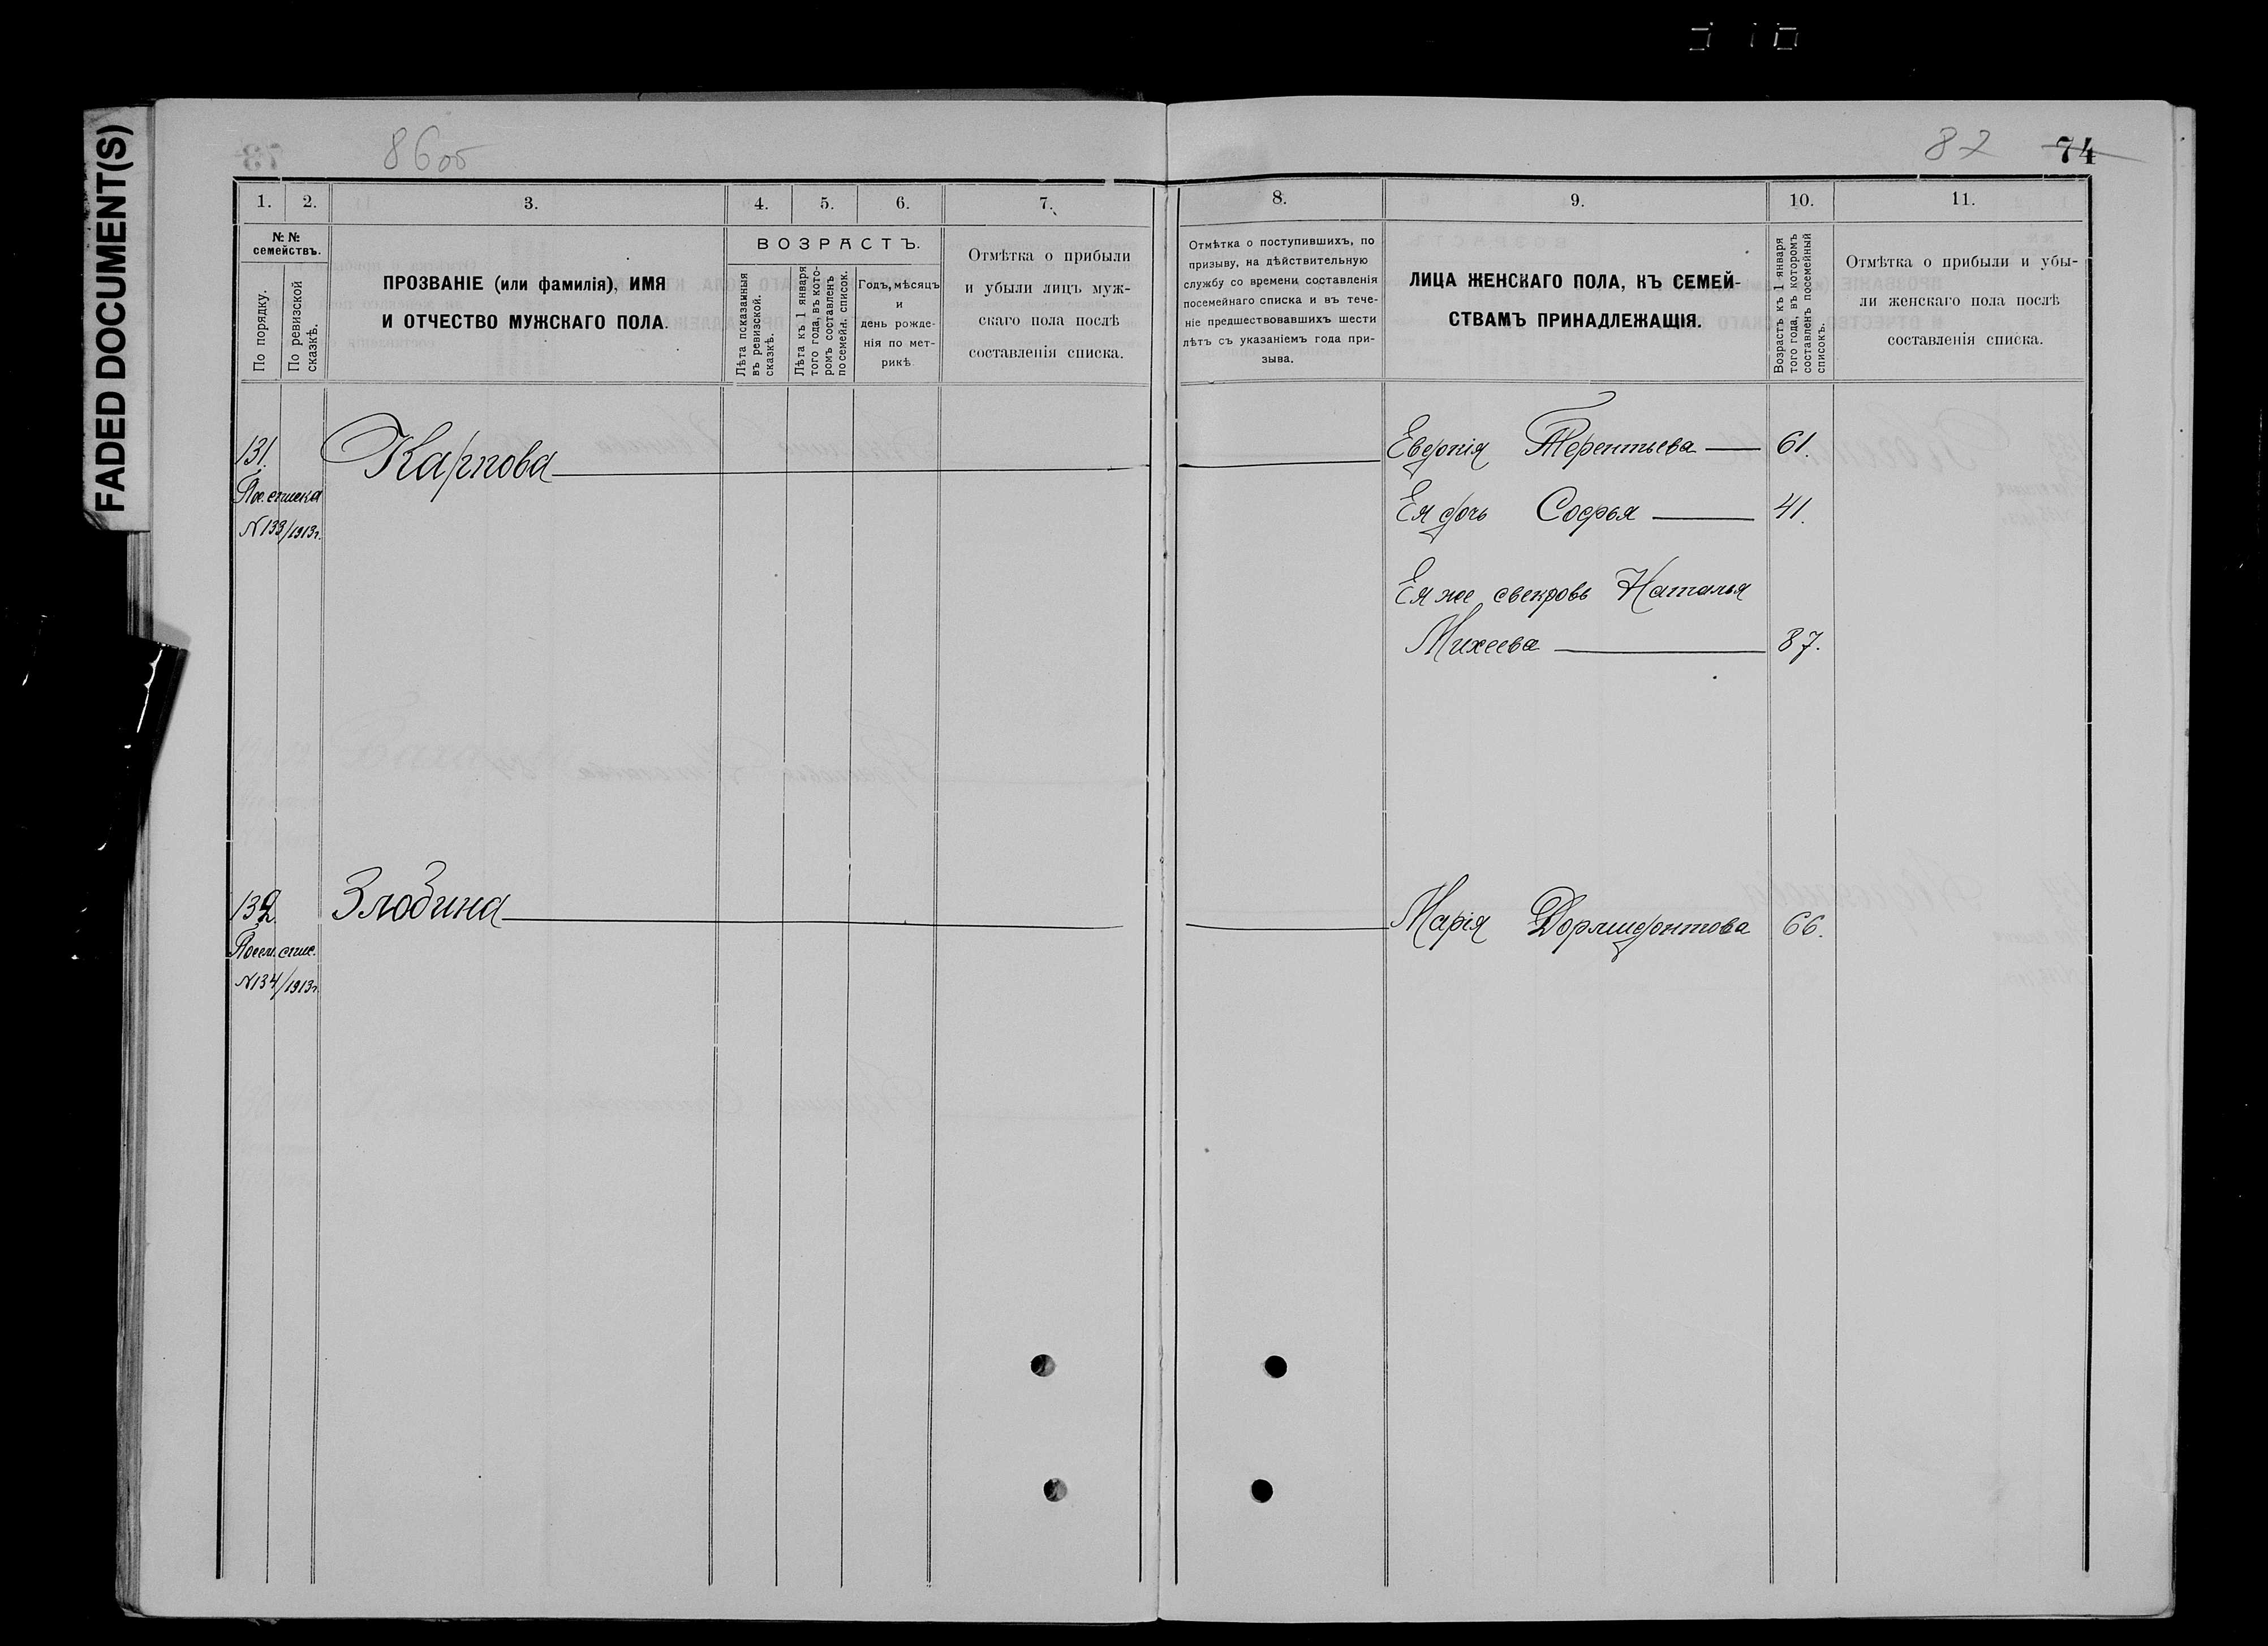 FADED DOCUMENT(S)
86об
87 74
1. 2. 3. 4. 5. 6. 7.
№ №
семействъ.
По порядку.
По ревизской
сказкѣ.
ПРОЗВАНІЕ (или фамилія), ИМЯ
И ОТЧЕСТВО МУЖСКАГО ПОЛА.
ВОЗРАСТЪ.
Лѣта показамныя
въ ревизской.
сказкѣ.
Лѣта къ 1 января
того года, въ кото-
ромъ составленъ
посемейн. список.
Годъ, мѣсяцъ
и
день рожде-
нія по мет-
рикѣ
Отмѣтка о прибыли
и убыли лицъ муж-
скаго пола послѣ
составленія списка.
131. Карпова
Пос. списка
N 133/1913г.
132. Злобина
Посем. спис.
N 134/1913г.
8. 9. 10. 11.
Отмѣтка о поступившихъ, по
призыву, на дѣйствительную
службу со времени составленія
посемейнаго списка и въ тече-
ніе предшествовавшихъ шести
лѣтъ съ указаніемъ года при-
зыва.
ЛИЦА ЖЕНСКАГО ПОЛА, КЪ СЕМЕЙ-
СТВАМЪ ПРИНАДЛЕЖАЩІЯ.
Возрастъ къ 1 января
того года, въ которомъ
составленъ посемейный
списокъ.
Отмѣтка о прибыли и убы-
ли женскаго пола послѣ
составленія списка.
Терентьева 61.
Ея дочь Софья 41.
Ея же свекровь Наталья
Михеева 87.
Марія Дормидонтова 66.